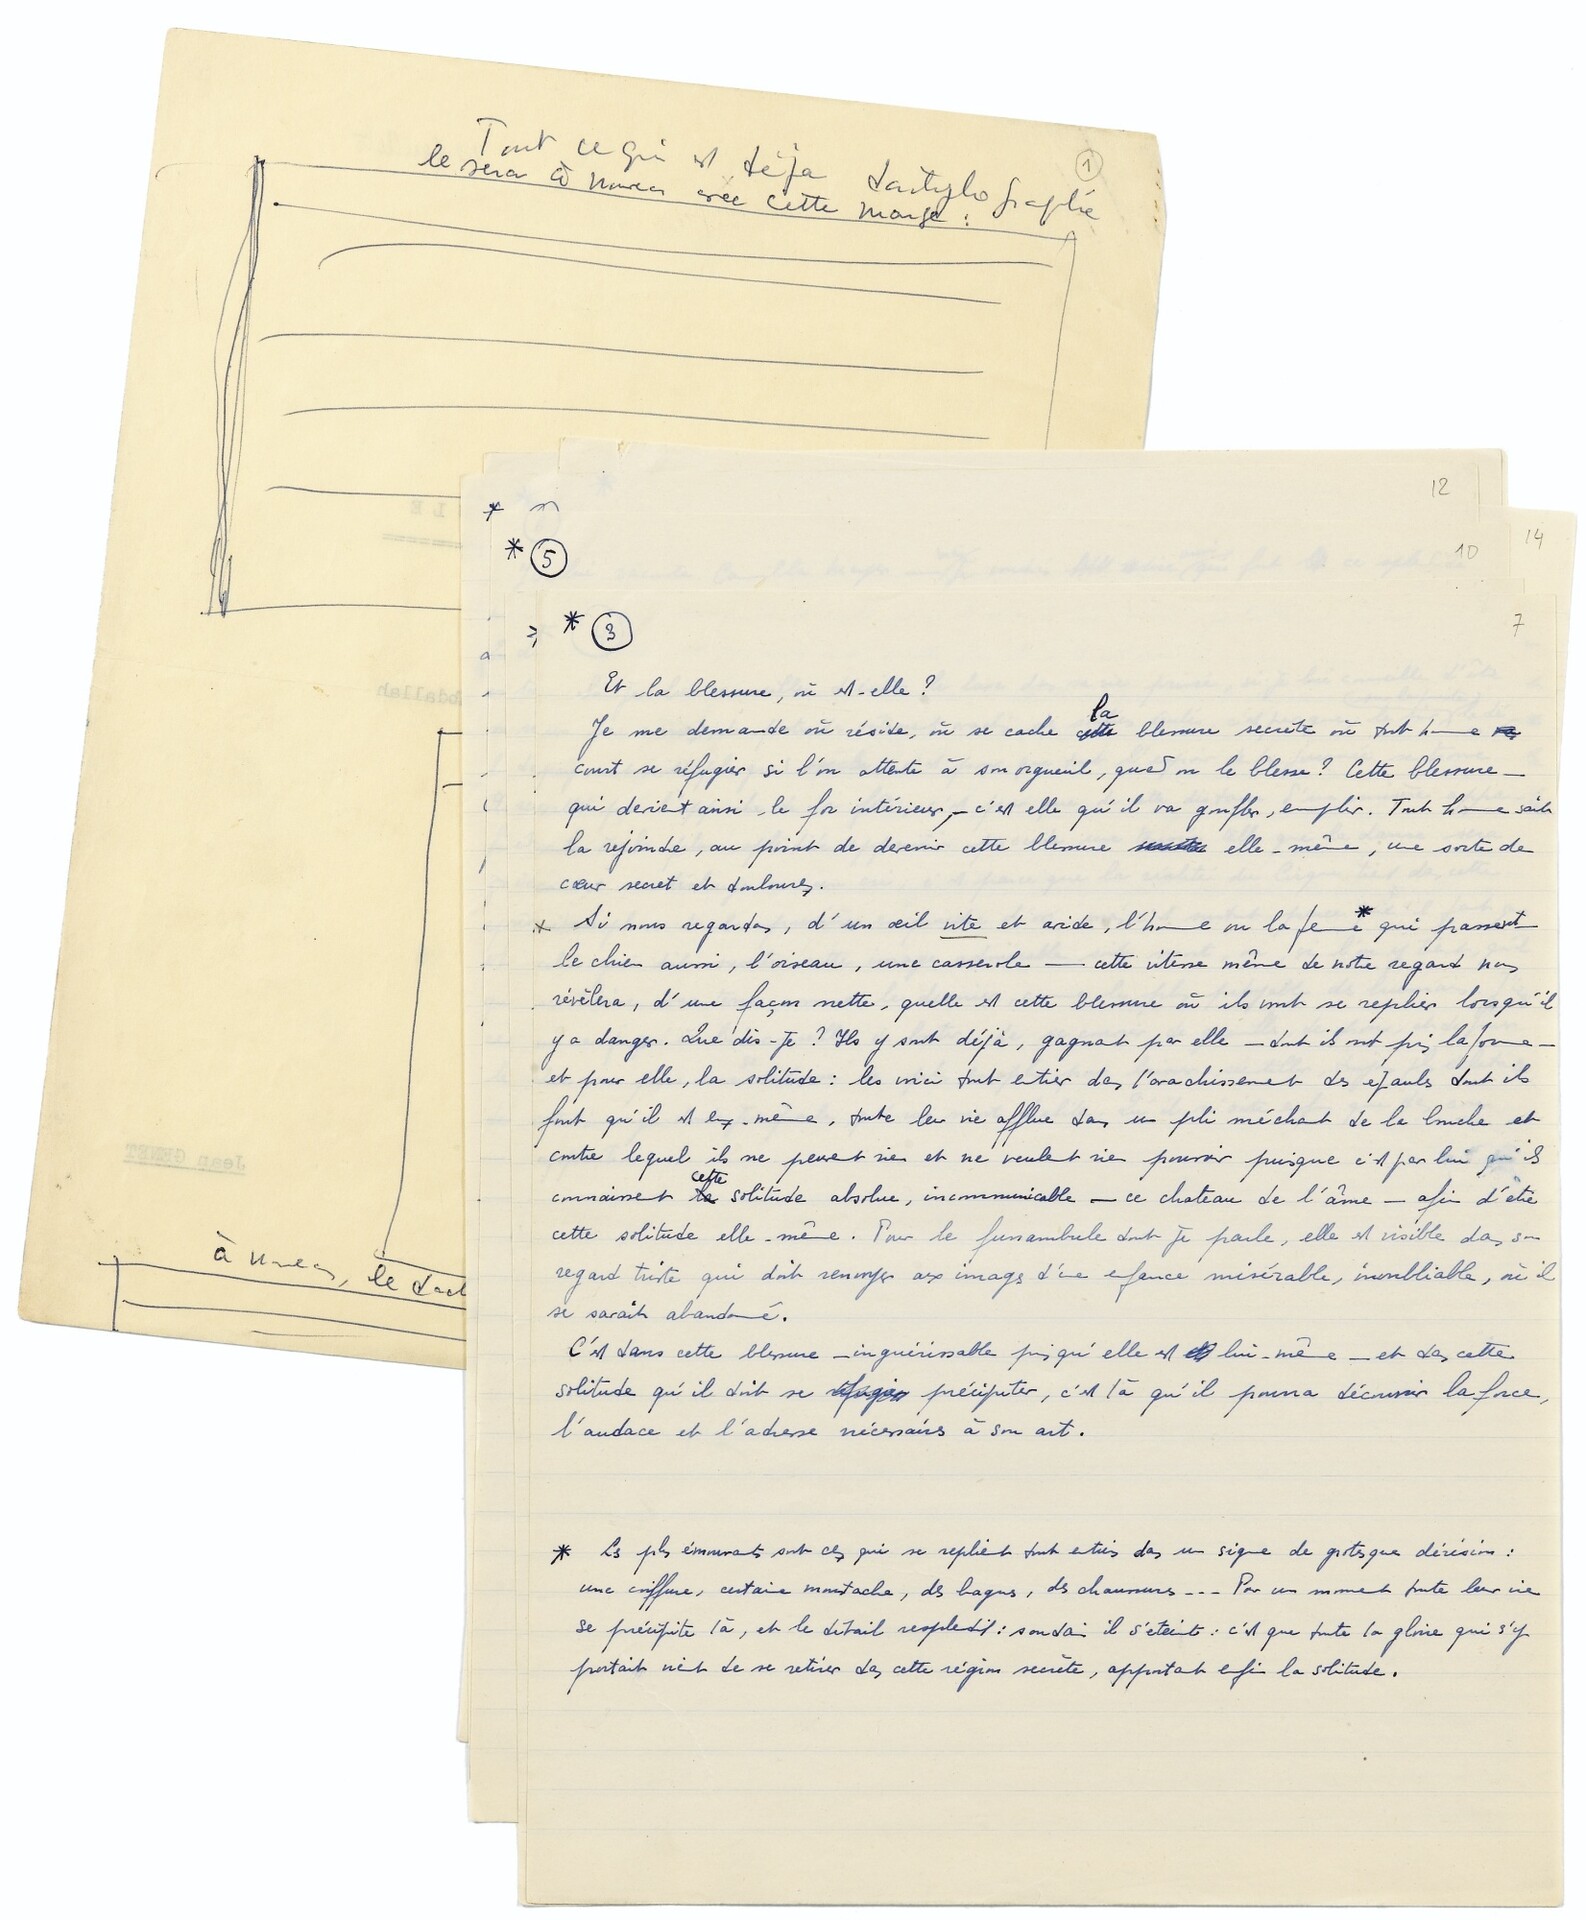 Tout ce qui est déjà dactylographié
le sera à nouveau avec cette marge :
1
12
14
10
7
* 5
* 3
Et la blessure, où est-elle ?
Je me demande où réside, où se cache cette la blessure secrète où tout homme
court se réfugier si l'on attente à son orgueil, quand on le blesse ? Cette blessure —
qui devient ainsi le for intérieur, — c'est elle qu'il va gonfler, emplir. Tout homme sait
la rejoindre, au point de devenir cette blessure elle-même, une sorte de
cœur secret et douloureux.
Si nous regardons, d'un œil vite et avide, l'homme ou la femme * qui passent
le chien aussi, l'oiseau, une casserole — cette vitesse même de notre regard nous
révèlera, d'une façon nette, quelle est cette blessure où ils vont se replier lorsqu'il
y a danger. Que dis-je ? Ils y sont déjà, gagnant par elle — dont ils ont pris la forme —
et pour elle, la solitude : les voici tout entier dans l'avachissement des épaules dont ils
font qu'il est eux-même, toute leur vie afflue dans un pli méchant de la bouche et
contre lequel ils ne peuvent rien et ne veulent rien pouvoir puisque c'est par lui qu'ils
connaissent la cette solitude absolue, incommunicable — ce chateau de l'âme — afin d'être
cette solitude elle-même. Pour le funambule dont je parle, elle est visible dans son
regard triste qui doit renvoyer aux images d'une enfance misérable, inoubliable, où il
se savait abandonné.
C'est dans cette blessure — inguérissable puisqu'elle est lui-même — et dans cette
solitude qu'il doit se réfugier précipiter, c'est là qu'il pourra découvrir la force,
l'audace et l'adresse nécessaires à son art.
* Les plus émouvants sont ceux qui se replient tout entiers dans un signe de grotesque dérision :
une coiffure, certaine moustache, des bagues, des chaussures --- Pour un moment toute leur vie
se précipite là, et le détail resplendit : soudain il s'éteint : c'est que toute la gloire qui s'y
portait vient de se retirer dans cette région secrète, apportant enfin la solitude.
Jean GENET
à nouveau, le dact